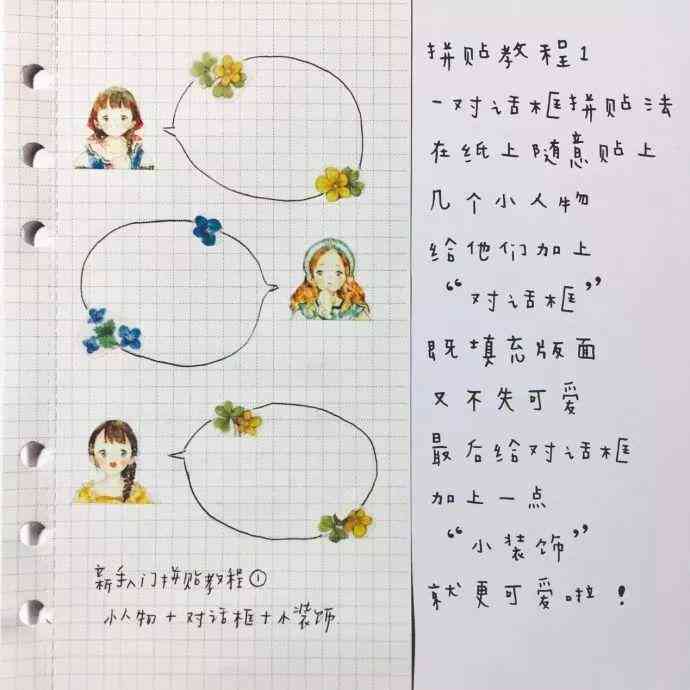 新手入门拼贴教程①
小人物+对话框+小装饰.
拼贴教程1
-对话框拼贴法
在纸上随意贴上
几个小人物
给他们加上
“对话框”
既填充版面
又不失可爱
最后给对话框
加上一点
“小装饰”
就更可爱啦!